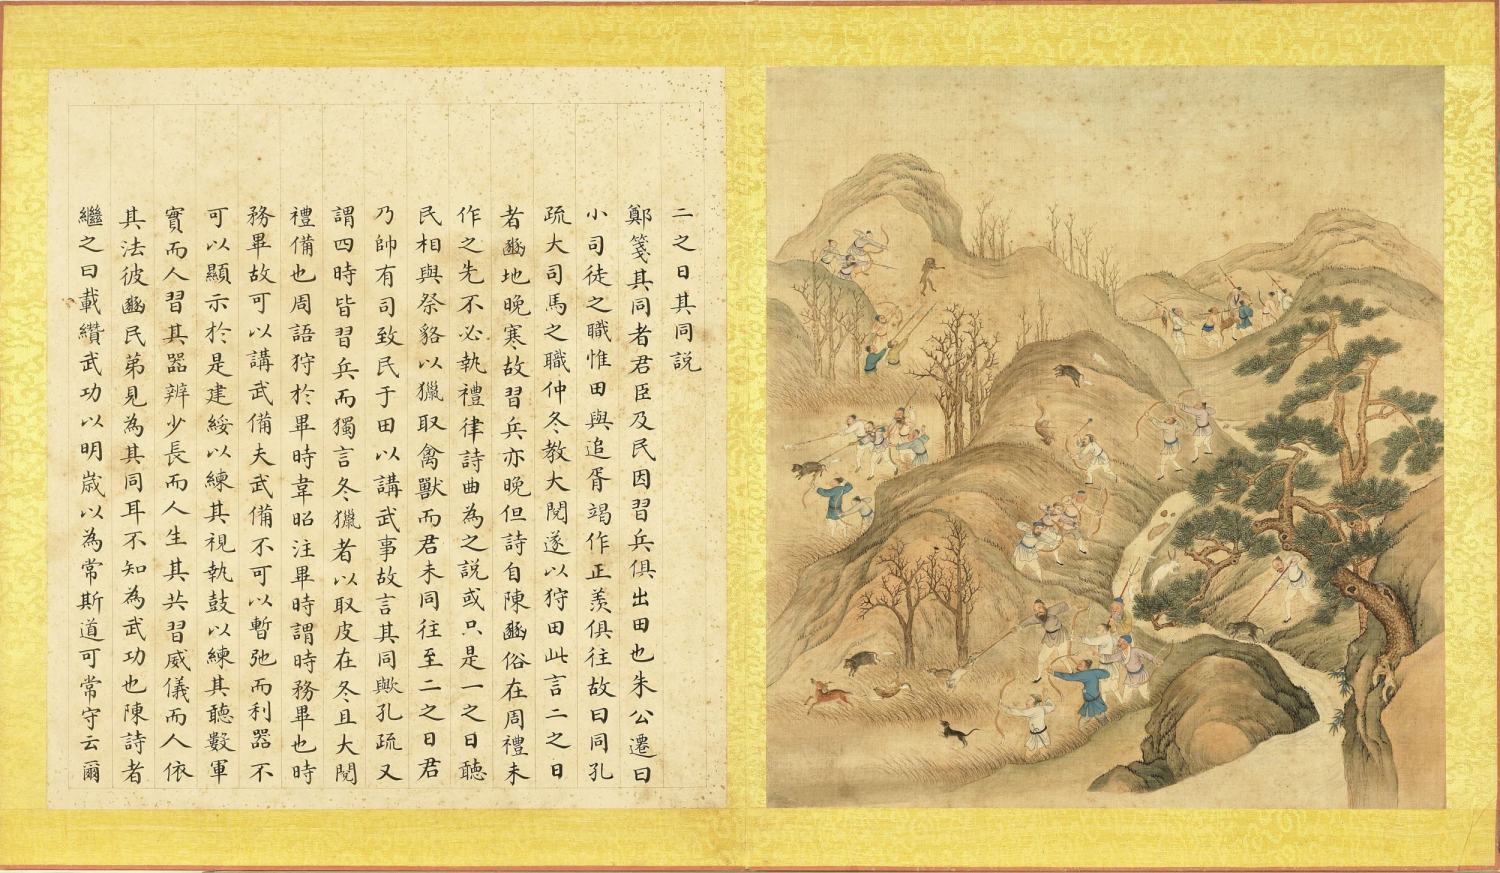 二之日其同説
鄭箋其同者君臣及民因習兵俱出田也朱公遷曰
小司徒之職惟田與追胥竭作正羨俱往故曰同孔
疏大司馬之職仲冬教大閱遂以狩田此言二之日
者豳地晚寒故習兵亦晚但詩自陳豳俗在周禮未
作之先不必執禮律詩曲為之説或只是一之日聽
民相與祭貉以獵取禽獸而君未同往至二之日君
乃帥有司致民于田以講武事故言其同歟孔疏又
謂四時皆習兵而獨言冬獵者以取皮在冬且大閱
禮備也周語狩於畢時韋昭注畢時謂時務畢也時
務畢故可以講武備夫武備不可以暫弛而利器不
可以顯示於是建綏以練其視執鼓以練其聽數軍
實而人習其器辨少長而人生其共習威儀而人依
其法彼豳民弟見為其同耳不知為武功也陳詩者
繼之曰載纘武功以明歲以為常斯道可常守云爾